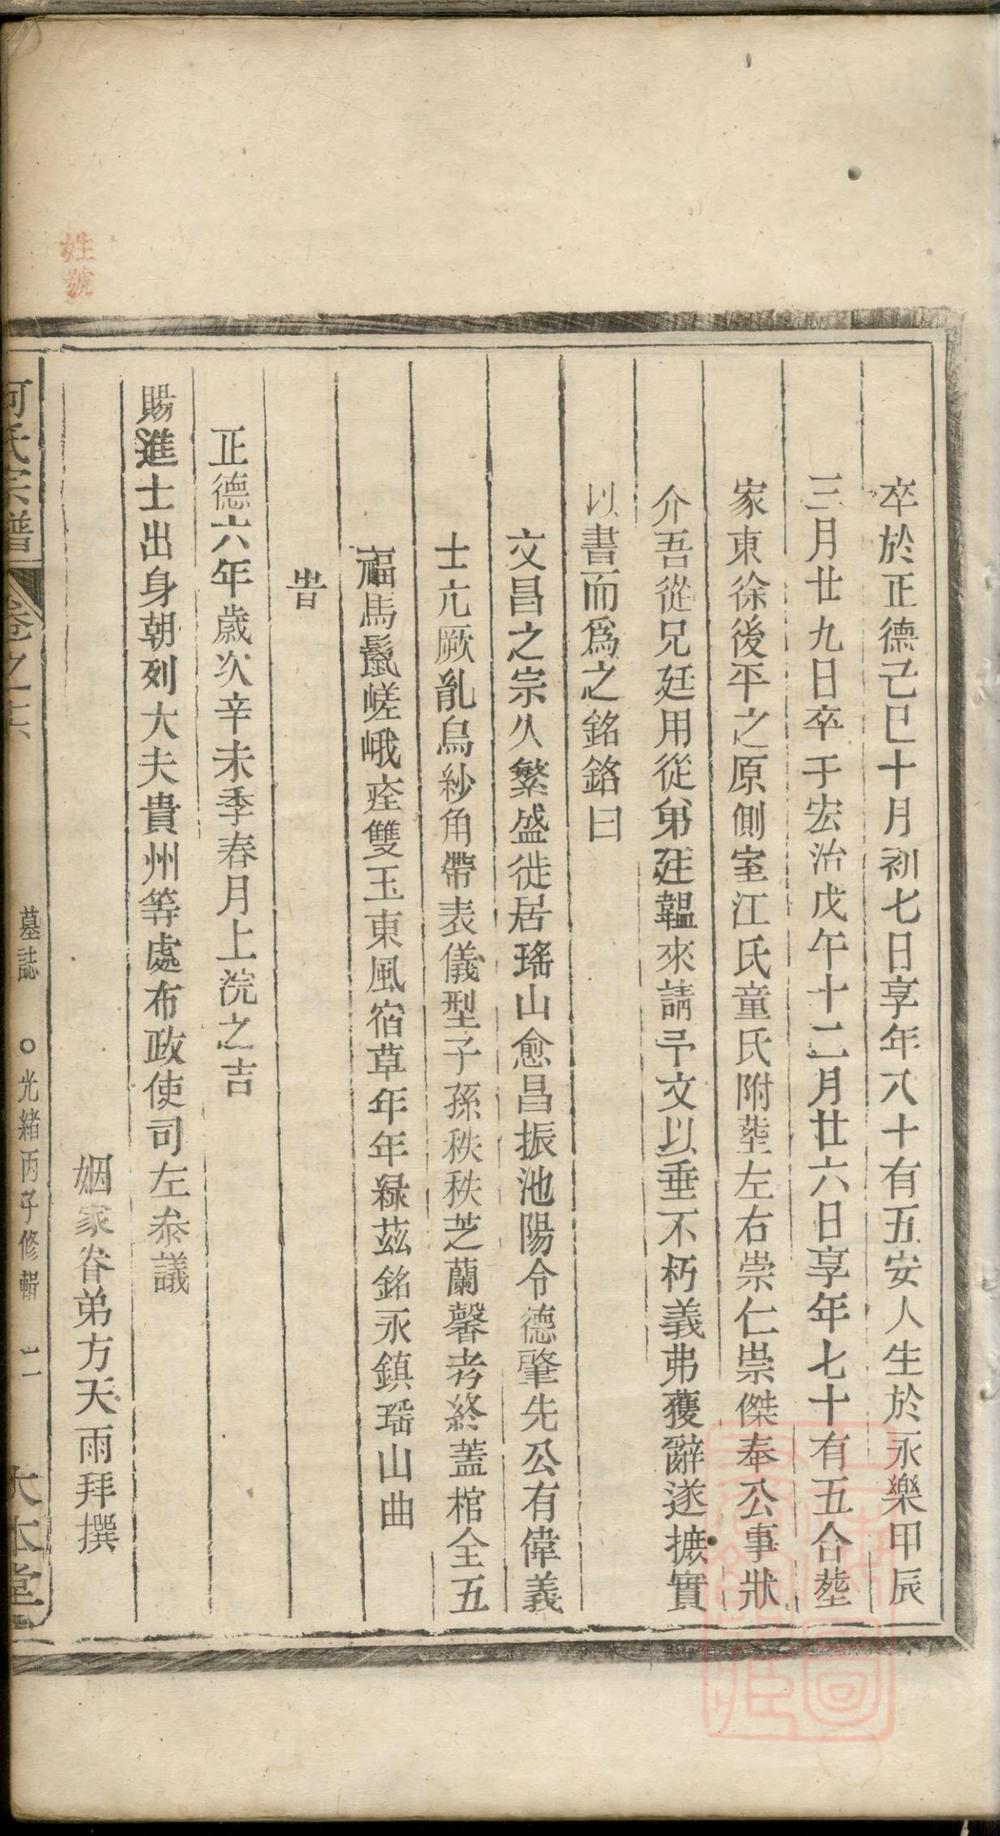 卒於正德己巳十月初七日享年八十有五安人生於永樂甲辰
三月廿九日卒于宏治戊午十二月廿六日享年七十有五合塟
家東徐後平之原側室江氏童氏附塟左右崇仁崇傑奉公事狀
介吾從兄廷用從弟廷韞來請予文以垂不朽義弗獲辭遂摭實
以書而爲之銘銘曰
文昌之宗久繁盛徙居瑤山愈昌振池陽令德肇先公有偉義
士亢厥亂烏紗角帶表儀型子孫秩秩芝蘭馨考終蓋棺全五
福馬鬣嵯峨痊雙玉東風宿草年年綠茲銘永鎮瑶山曲
旹
正德六年歲次辛未季春月上浣之吉
賜進士出身朝列大夫貴州等處布政使司左叅議
姻家眷弟方天雨拜撰
何氏宗譜 卷之 墓誌 ○光緒丙子修輯 二 大本堂
姓號